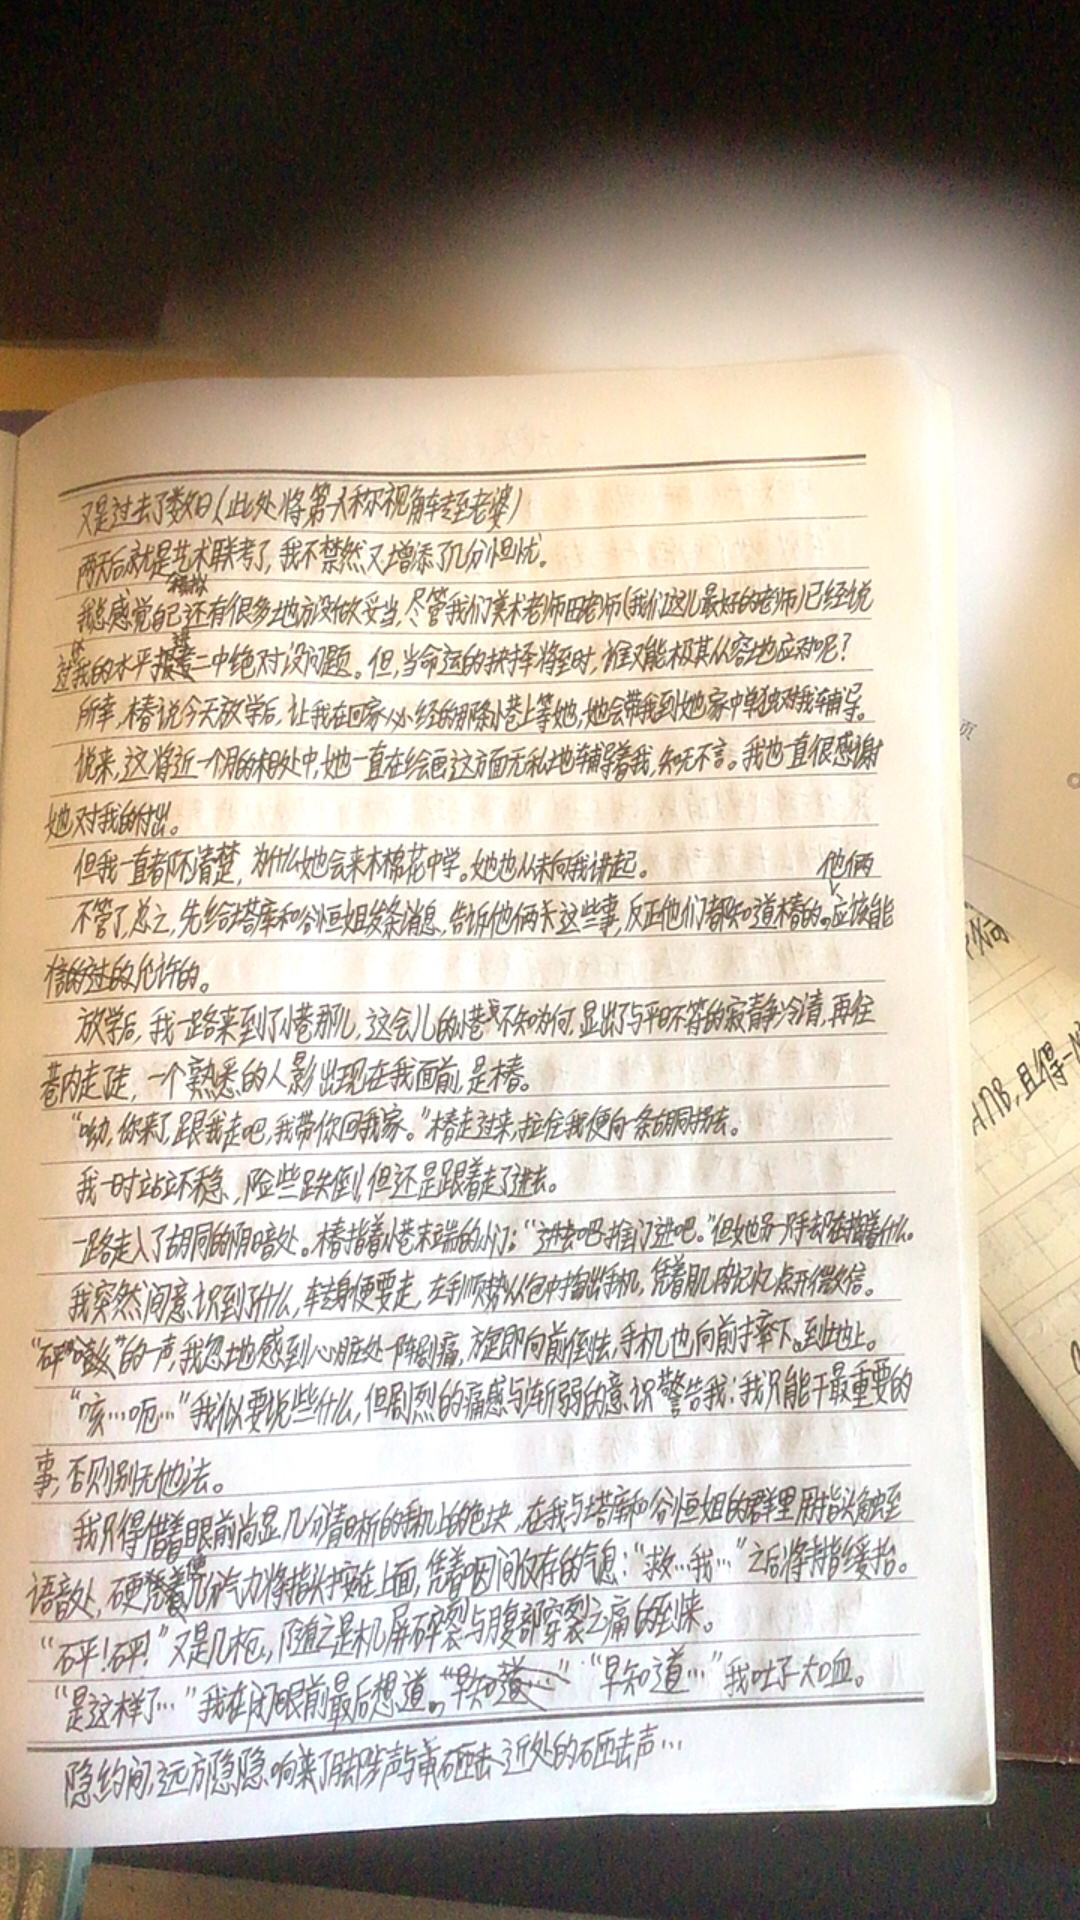 又是过去了数日(此处将第一人称视角转至老婆)
两天后就是艺术联考了,我不禁然又增添了几分担忧。
模拟
我总感觉自己还有很多地方没做妥当,尽管我们美术老师田老师(我们这儿最好的老师)已经说
过我的水平进二中绝对没问题。但,当命运的抉择将至时,谁又能极其从容地应对呢?
所幸,椿说今天放学后,让我在回家必经的那条小巷上等她,她会带我到她家中单独对我辅导。
说来,这将近一个月的相处中,她一直在绘画这方面无私地辅导着我,知无不言。我也一直很感谢
她对我的付出。
但我一直都不清楚,为什么她会来木棉花中学。她也从未向我讲起。
他俩
不管了,总之,先给塔库和谷恒姐发条消息,告诉他俩关这些事,反正他们都知道椿的。应该能
信的过的,允许的。
放学后,我一路来到了小巷那儿,这会儿的小巷不知为何,显出了与平日不符的寂静冷清,再往
巷内走了走,一个熟悉的人影出现在我面前,是椿。
“呦,你来了,跟我走吧,我带你回我家。”椿走过来,拉住我便向一条胡同拐去。
我一时站立不稳,险些跌倒,但还是跟着走了进去。
一路走入了胡同的阴暗处。椿指着小巷末端的小门:“进去吧推门进吧。”但她另一只手却在掏着什么。
我突然间意识到了什么,转身便要走,左手顺势从包中掏出手机,凭着肌肉记忆点开微信。
“砰”的一声,我忽地感到心脏处一阵剧痛,旋即向前倒去,手机也向前摔下。到地上。
“咳…呃…”我似要说些什么,但剧烈的痛感与渐弱的意识警告我:我只能干最重要的
事,否则别无他法。
我只得借着眼前尚显几分清晰的手机上的色块,在我与塔库和谷恒姐的群里用指头触至
语音处,硬凭着几分气力将指头按在上面,凭着咽间仅存的气息:“救…我…”之后将拇指缓抬。
“砰!砰!”又是几枪,随之是机屏碎裂与腹部穿裂之痛的到来。
“是这样了…”我在闭眼前最后想道。“早知道…”“早知道…”我吐了一大口血。
隐约间,远方隐隐响来了脚步声与近处的砸击声…